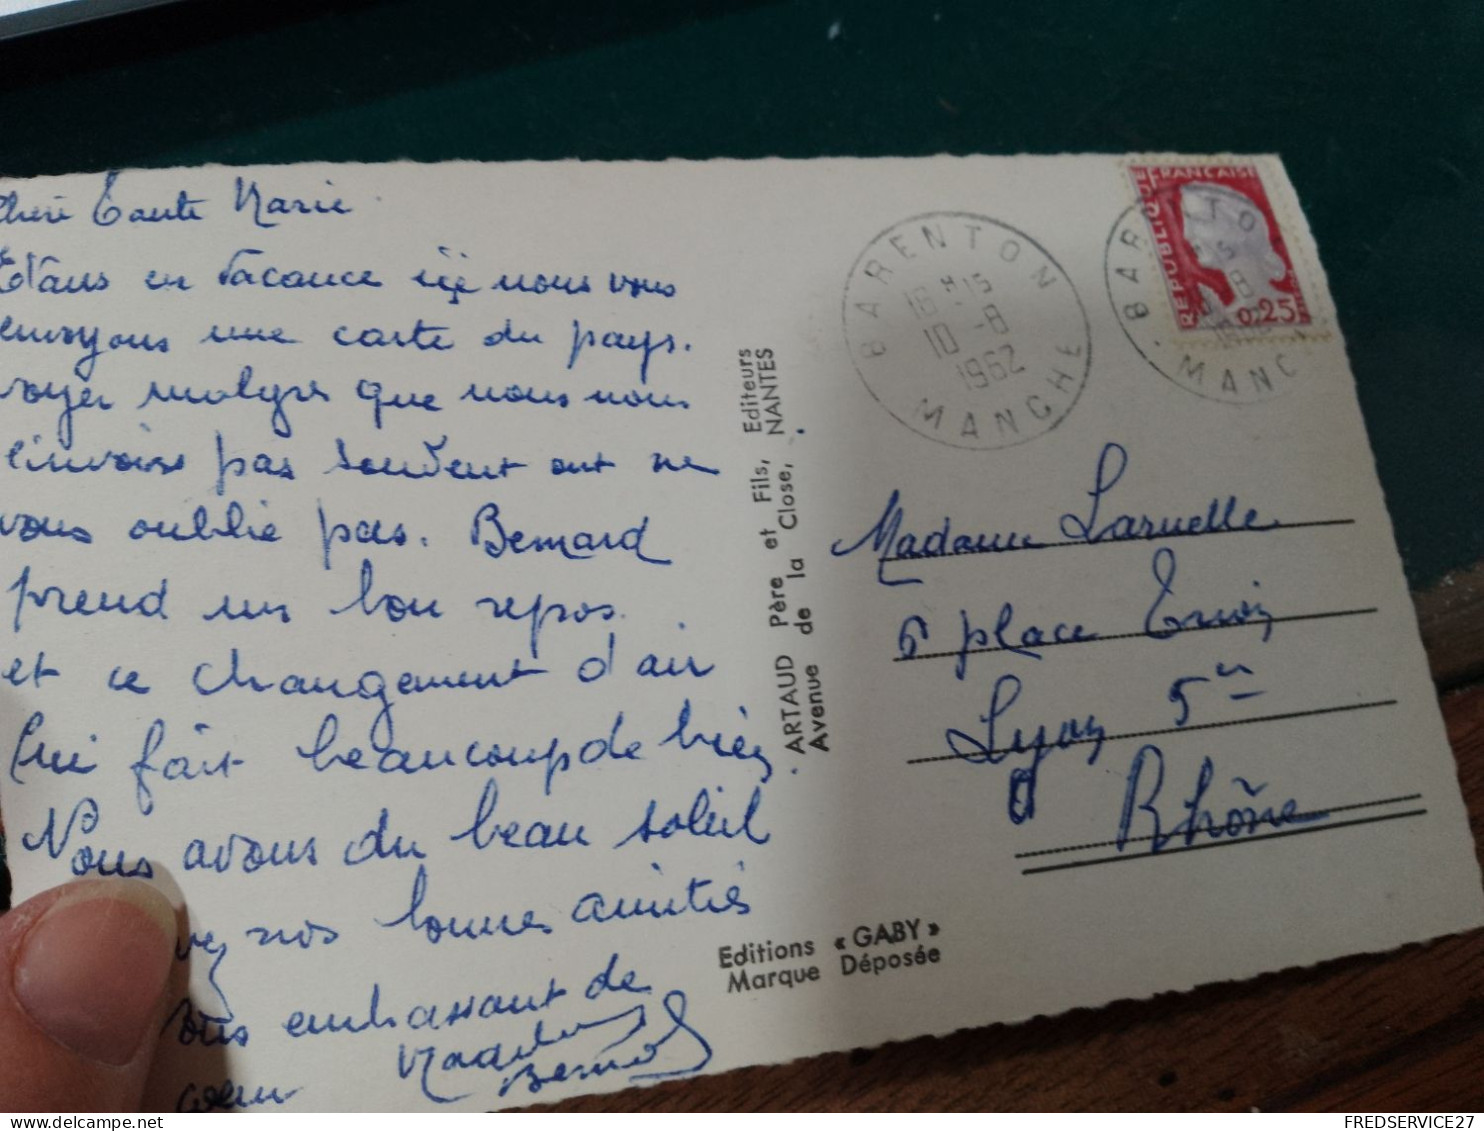 Chère Tante Marie
Etans en vacance içi nous vous
envoyons une carte du pays.
croyer malgrés que nous nous
écrivoirs pas souvent ont ne
vous oublie pas. Bernard
prend un bon repos.
et ce changement d'air
lui fait beaucoup de bien
Nous avons du beau soleil
nos bonnes amitiés
vous embrassant de
coeur Madeleine
Bernard
ARTAUD Père et Fils, Editeurs
Avenue de la Close, NANTES
Editions « GABY »
Marque Déposée
BARENTON
16 H 15
10 - 8
1962
MANCHE
REPUBLIQUE FRANÇAISE
0,25
BARENTON
MANCHE
Madame Laruelle
6 place
Lyon 5em
Rhône
FREDSERVICE27